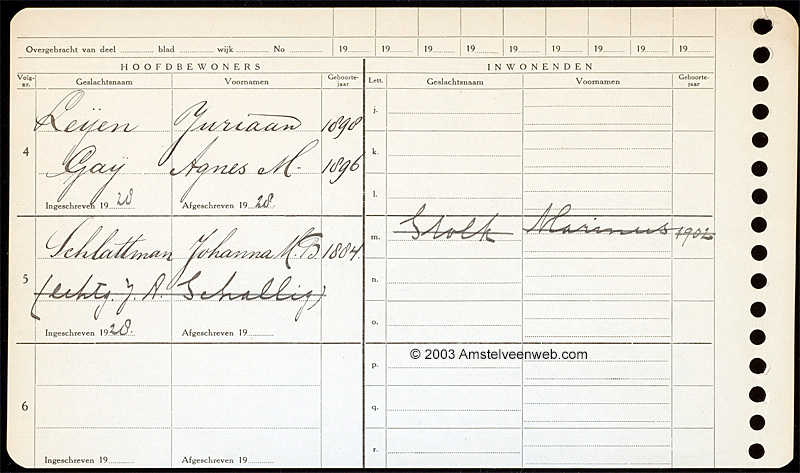 Overgebracht van deel blad wijk No 19 19 19 19 19 19 19 19 19
HOOFDBEWONERS INWONENDEN
Volg-nr. Geslachtsnaam Voornamen Geboorte-jaar Lett. Geslachtsnaam Voornamen Geboorte-jaar
j.
Leijen Juriaan 1898
4 k.
Gay Agnes M. 1896
l.
Ingeschreven 1928 Afgeschreven 1928.
m. Stolk Marinus 1902
Schlattman Johanna M.B. 1884.
5 n.
(echtg. J. A. Schallig)
o.
Ingeschreven 1928. Afgeschreven 19
© 2003 Amstelveenweb.com
p.
6 q.
r.
Ingeschreven 19 Afgeschreven 19